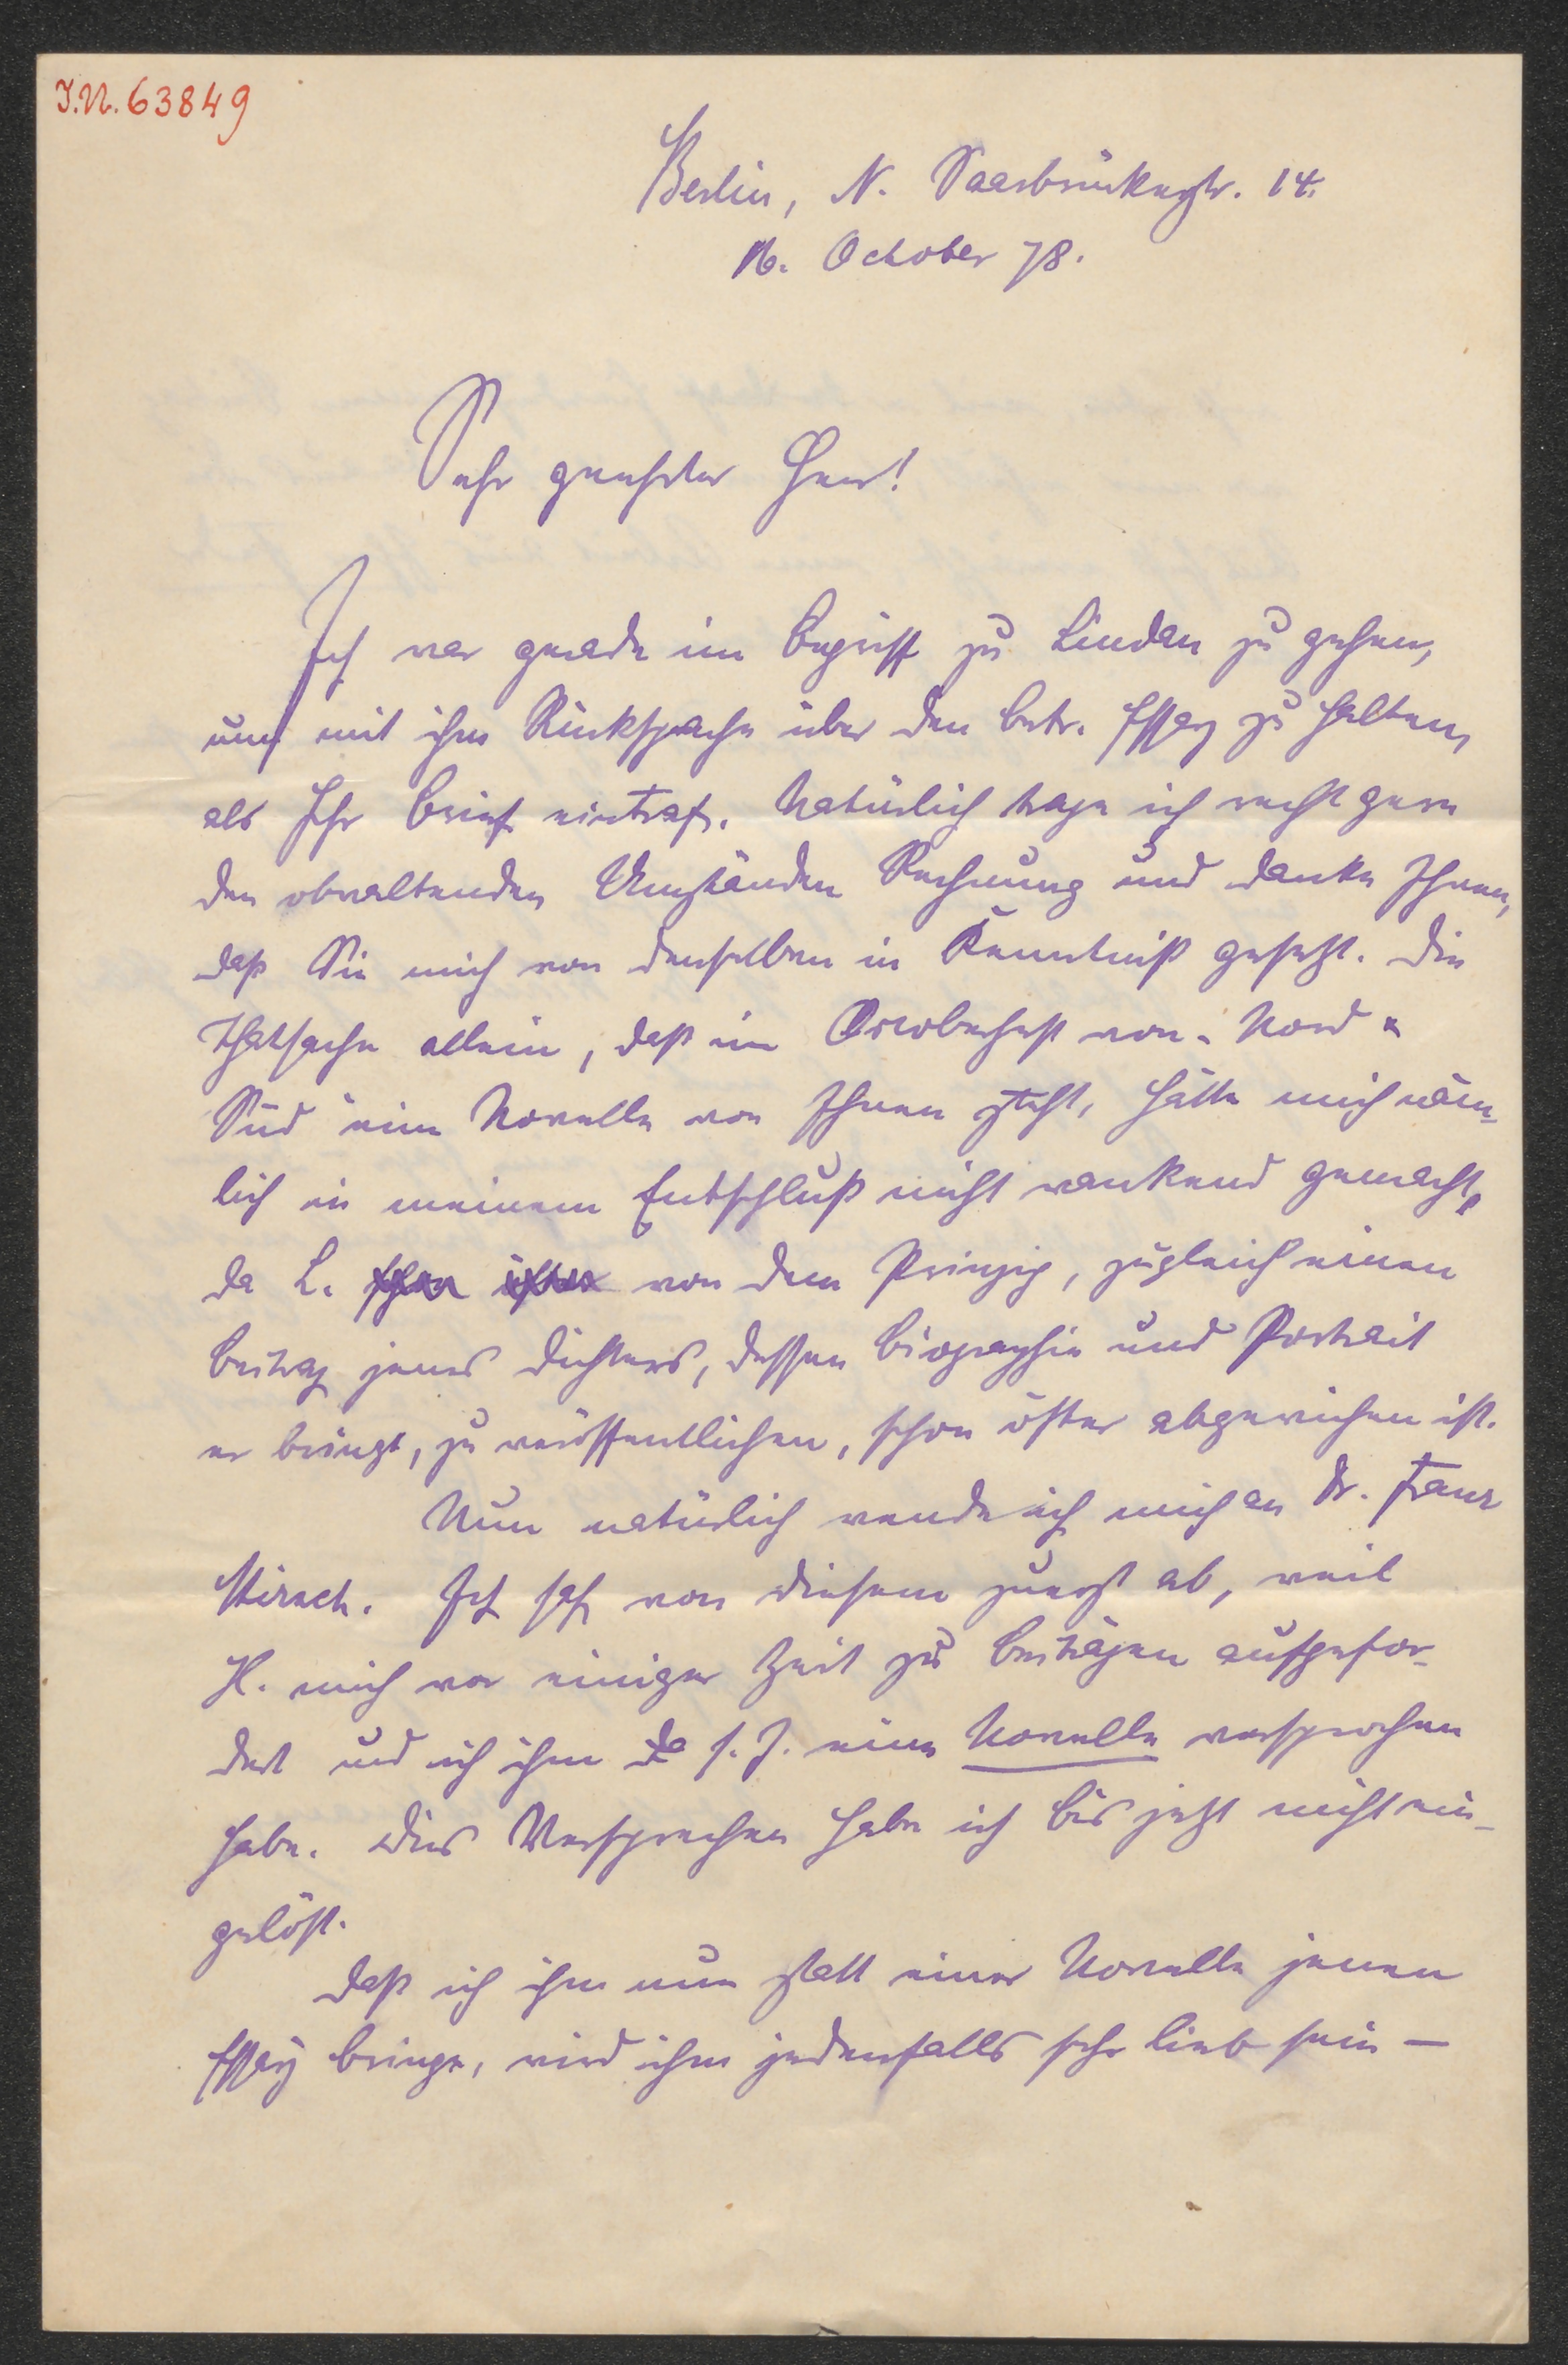 I.N. 63849
Berlin, N. Saarbrückerstr. 14.
16. October 78.
Sehr geehrter Herr!
Ich war gerade im Begriff zu Lindau zu gehen,
um mit ihm Rücksprache über den betr. Essay zu halten,
als Ihr Brief eintraf. Natürlich trage ich recht gern
den obwaltenden Umständen Rechnung und danke Ihnen,
daß Sie mich von denselben in Kenntniß gesetzt. Die
Thatsache allein, daß im Octoberheft von „Nord &
Süd“ eine Novelle von Ihnen steht, hätte mich näm-
lich in meinem Entschluß nicht wankend gemacht,
da L. schon öfter von dem Prinzip, zugleich einen
Beitrag jenes Dichters, dessen Biographie und Portrait
er bringt, zu veröffentlichen, schon öfter abgewichen ist.
Nun natürlich wende ich mich an Dr. Franz
Hirsch. Ich sah von diesem zuerst ab, weil
H. mich vor einiger Zeit zu Beiträgen aufgefor-
dert und ich ihm s. Z. eine Novelle versprochen
habe. Dies Versprechen habe ich bis jetzt nicht ein-
gelöst.
Daß ich ihm nun statt einer Novelle jenen
Essay bringe, wird ihm jedenfalls sehr lieb sein —